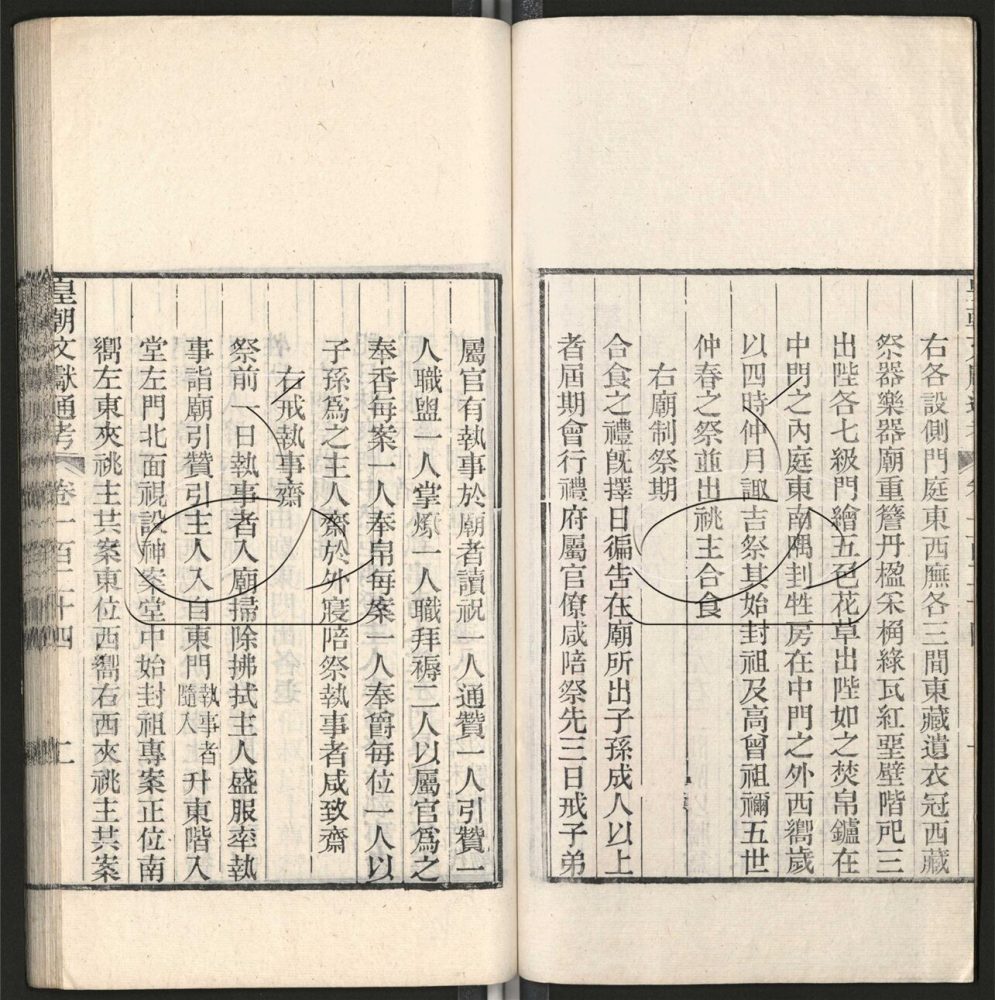 右各設側門庭東西廡各三間東藏遺衣冠西藏
祭器樂器廟重簷丹楹采桷綠瓦紅堊壁階戺三
出陛各七級門繪五色花草出陛如之焚帛鑪在
中門之內庭東南隅刲牲房在中門之外西嚮歲
以四時仲月諏吉祭其始封祖及高曾祖禰五世
仲春之祭並出祧主合食
右廟制祭期
合食之禮旣擇日徧吿在廟所出子孫成人以上
者屆期會行禮府屬官僚咸陪祭先三日戒子弟
屬官有執事於廟者讀祝一人通贊一人引贊一
人職盥一人掌燎一人職拜褥二人以屬官爲之
奉香每案一人奉帛每案一人奉爵每位一人以
子孫爲之主人齋於外寢陪祭執事者咸致齋
右戒執事齋
祭前一日執事者入廟掃除拂拭主人盛服率執
事詣廟引贊引主人入自東門執事者隨入升東階入
堂左門北面視設神案堂中始封祖專案正位南
嚮左東夾祧主共案東位西嚮右西夾祧主共案
皇朝文獻通考 卷一百二十四 二